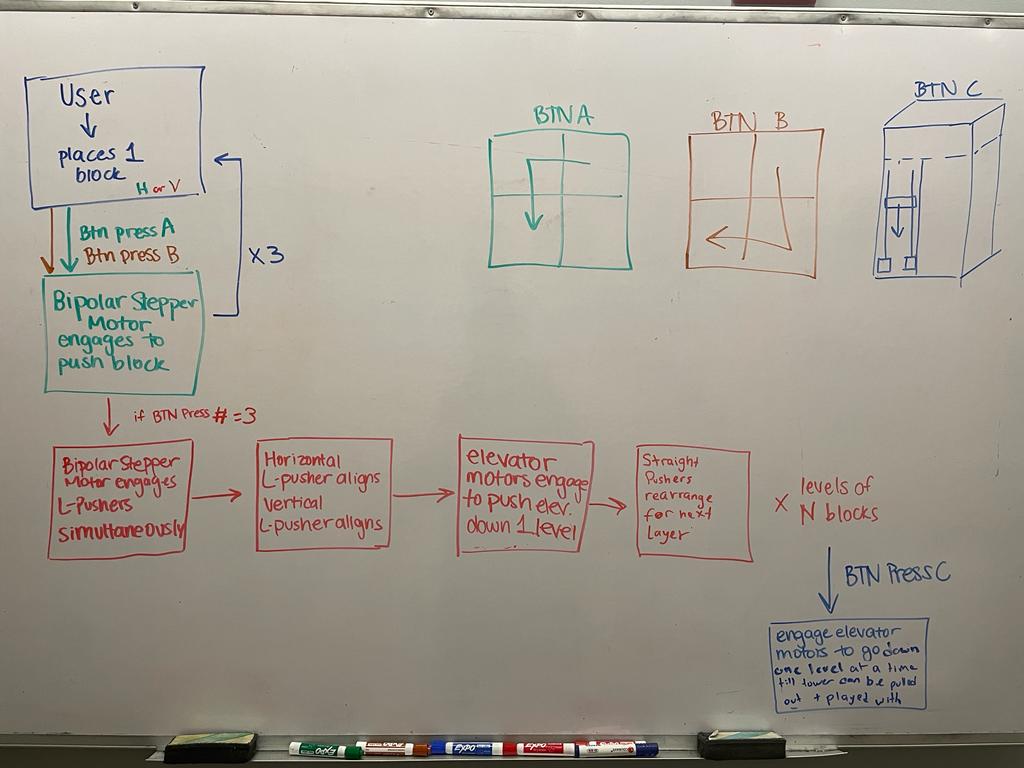 User
places 1
block
H or V
Btn press A
Btn press B
x3
Bipolar Stepper
Motor
engages to
push block
if BTN Press # = 3
Bipolar Stepper
Motor engages
L-Pushers
simultaneously
Horizontal
L-pusher aligns
vertical
L-pusher alligns
elevator
motors engage
to push elev.
down 1 level
Straight
Pushers
rearrange
for next
Layer
x levels of
N blocks
BTN Press C
engage elevator
motors to go down
one level at a time
till tower can be pulled
out + played with
BTN A
BTN B
BTN C
EXPO
EXPO
EXPO